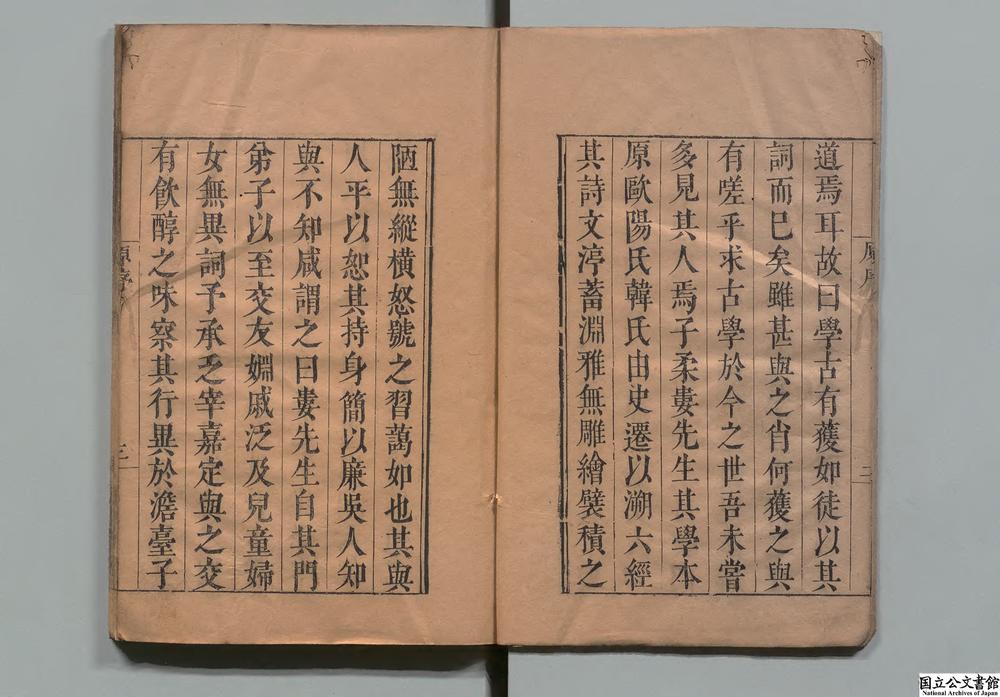 道焉耳故曰學古有獲如徒以其
詞而已矣雖甚與之肖何獲之與
有嗟乎求古學於今之世吾未嘗
多見其人焉子柔婁先生其學本
原歐陽氏韓氏由史遷以溯六經
其詩文渟蓄淵雅無雕繪襞積之
陋無縱橫怒號之習藹如也其與
人平以恕其持身簡以廉吳人知
與不知咸謂之曰婁先生自其門
弟子以至交友婣戚泛及兒童婦
女無異詞予承乏宰嘉定與之交
有飮醇之味察其行異於澹臺子
原序
二
原序
三
国立公文書館
National Archives of Japan